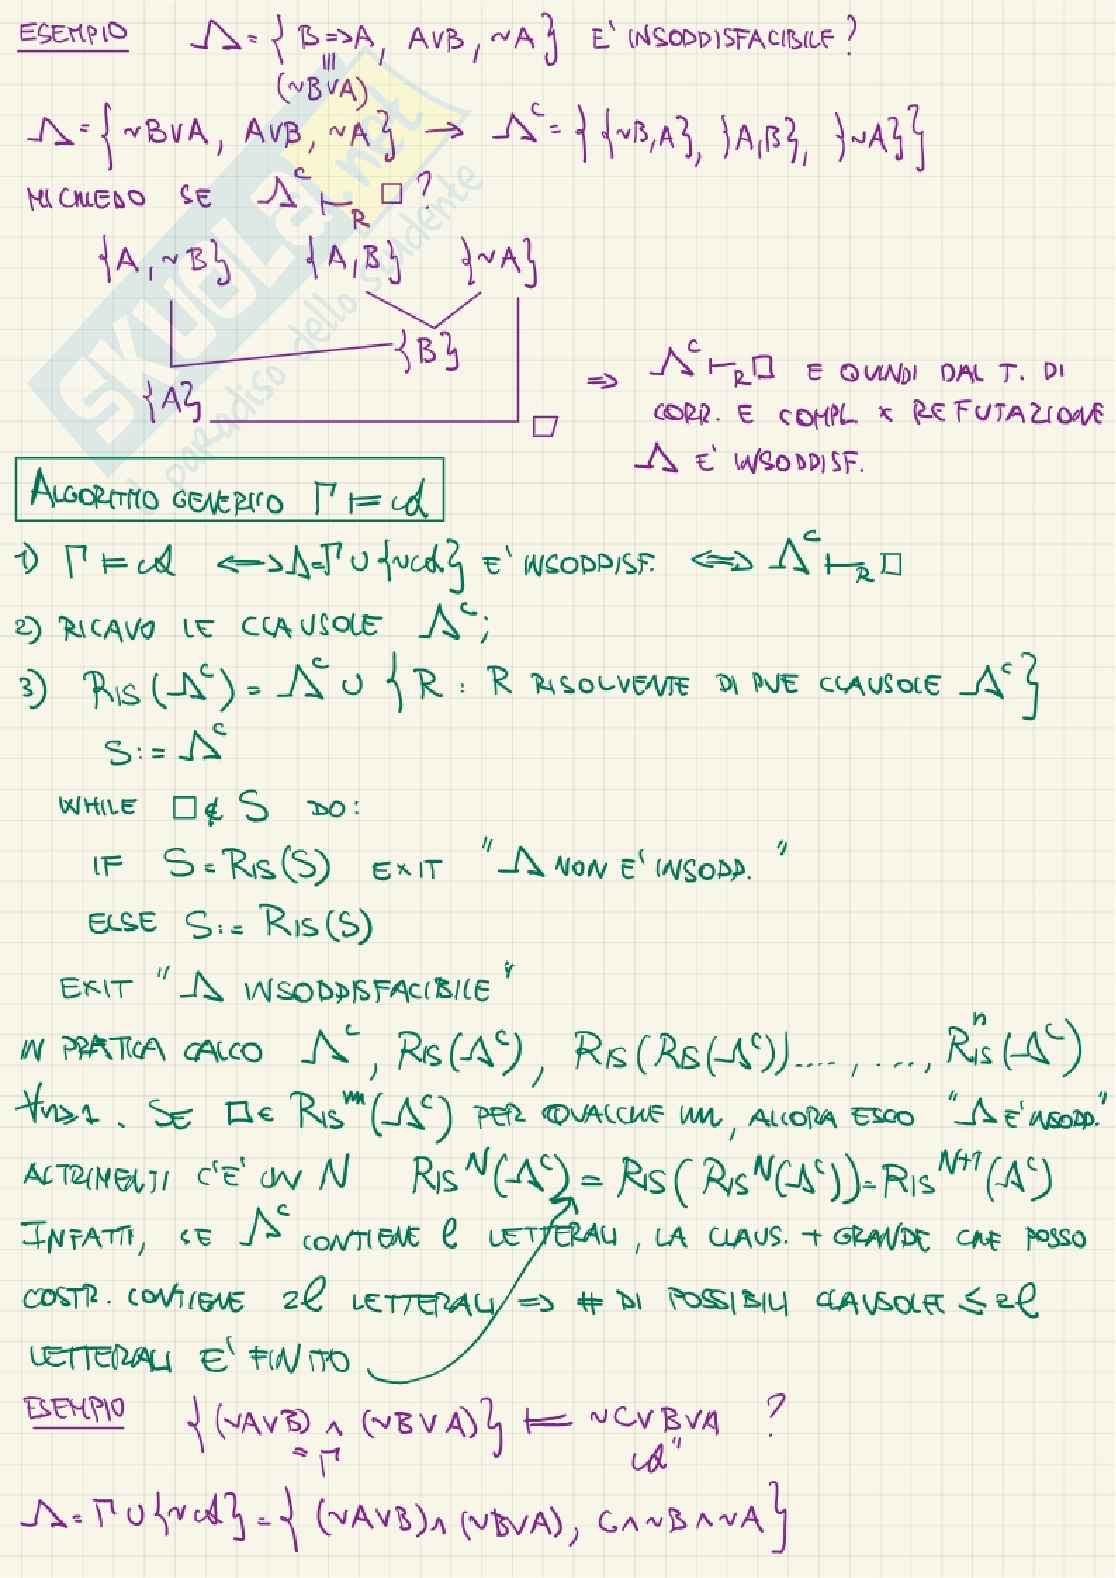 ESEMPIO Δ = { B=>A, A∨B, ~A } E' INSODDISFACIBILE?
≡
(~B∨A)
Δ = { ~B∨A, A∨B, ~A } → Δᶜ = { {~B,A}, {A,B}, {~A} }
MI CHIEDO SE Δᶜ ⊢R □?
{A, ~B} {A,B} {~A}
{B}
{A}
□
=> Δᶜ ⊢R □ E QUINDI DAL T. DI
CORR. E COMPL x REFUTAZIONE
Δ E' INSODDISF.
ALGORITMO GENERICO Γ ⊨ 𝒜
1) Γ ⊨ 𝒜 <-> Δ=Γ∪{~𝒜} E' INSODDISF. <=> Δᶜ ⊢R □
2) RICAVO LE CLAUSOLE Δᶜ;
3) RIS(Δᶜ) = Δᶜ ∪ { R : R RISOLVENTE DI DUE CLAUSOLE Δᶜ }
S := Δᶜ
WHILE □ ∉ S DO:
IF S = RIS(S) EXIT "Δ NON E' INSODD."
ELSE S := RIS(S)
EXIT "Δ INSODDISFACIBILE"
IN PRATICA CALCO Δᶜ, RIS(Δᶜ), RIS(RIS(Δᶜ))...., ..., RISⁿ(Δᶜ)
∀n≥1. SE □∈ RISᵐ(Δᶜ) PER QUALCHE m, ALLORA ESCO "Δ E' INSODD."
ALTRIMENTI C'E' UN N RISᴺ(Δᶜ) = RIS(RISᴺ(Δᶜ)) = RISᴺ⁺¹(Δᶜ)
INFATTI, SE Δᶜ CONTIENE ℓ LETTERALI, LA CLAUS. + GRANDE CHE POSSO
COSTR. CONTIENE 2ℓ LETTERALI => # DI POSSIBILI CLAUSOLE ≤ 2ℓ
LETTERALI E' FINITO
ESEMPIO {(~A∨B) ∧ (~B∨A)} ⊨ ~C∨B∨A ?
= Γ 𝒜"
Δ = Γ∪{~𝒜} = { (~A∨B)∧(~B∨A), C∧~B∧~A }
SKUOLA.net
paradiso dello studente